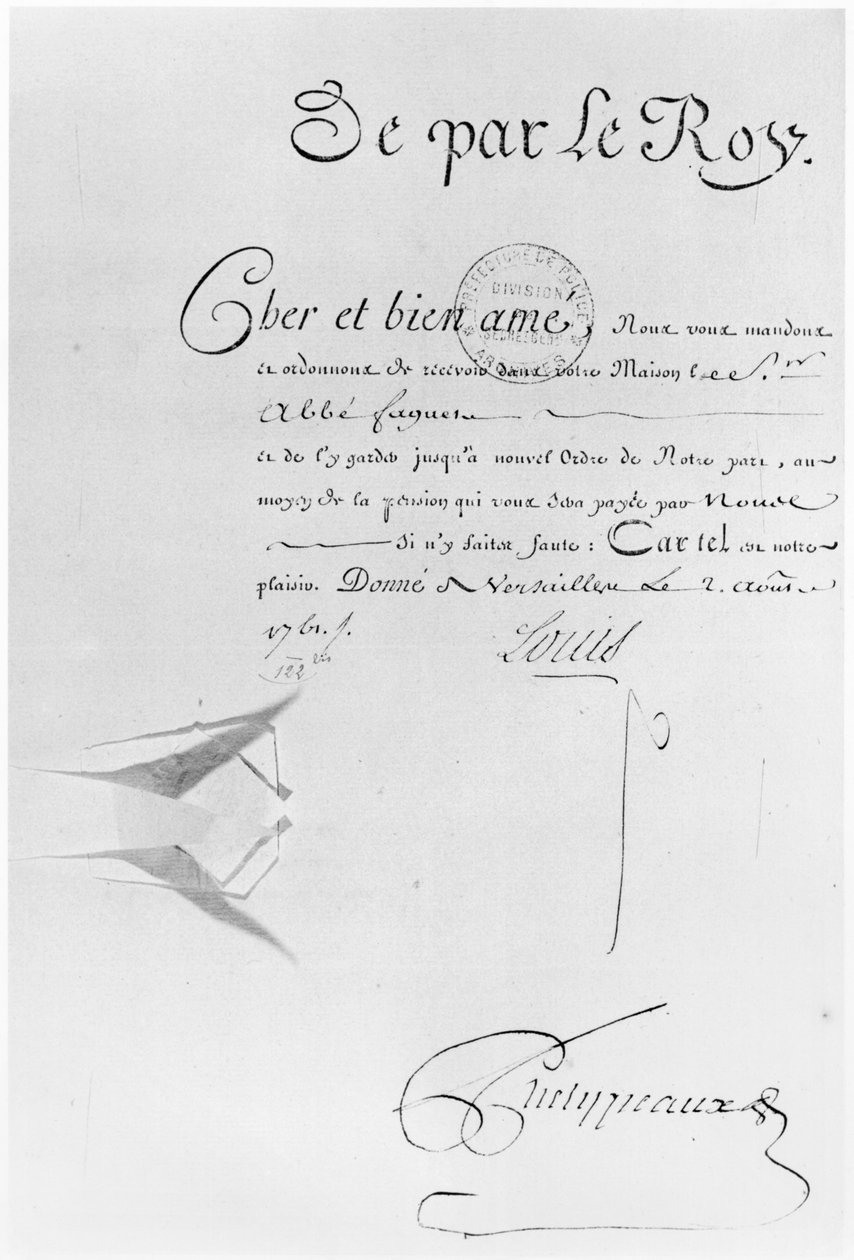 De par Le Roy.
PREFECTURE DE POLICE
DIVISION
ARCHIVES
Cher et bien ame, Nous vous mandons
et ordonnons de recevoir dans votre Maison le S.r
Abbé
et de l'y garder jusqu'à nouvel Ordre de Notre part, au
moyen de la pension qui vous sera payée par Nous
Si n'y faites faute: Car tel est notre
plaisir. Donné à Versailles Le 2. Aoûst
1761.
122 bis
Louis
Phelypeaux